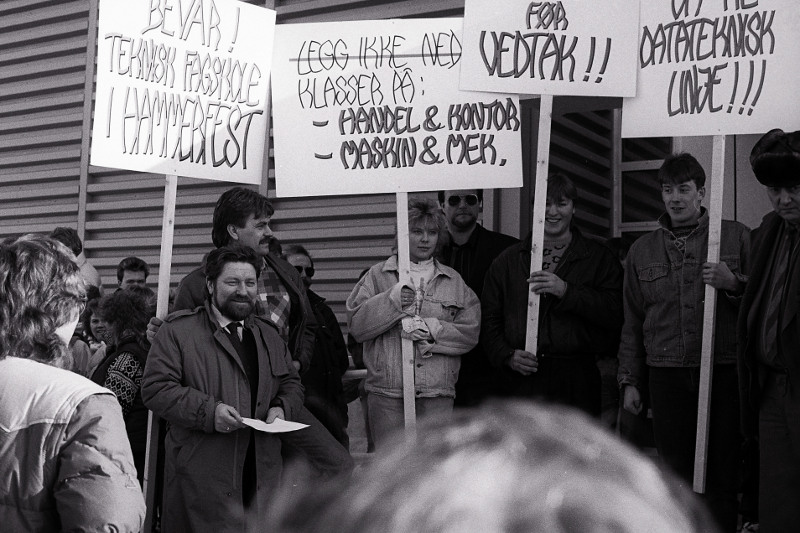 BEVAR!
TEKNISK FAGSKOLE
I HAMMERFEST
LEGG IKKE NED
KLASSER PÅ:
- HANDEL & KONTOR
- MASKIN & MEK.
FØR
VEDTAK!!
DATATEKNISK
LINJE!!!